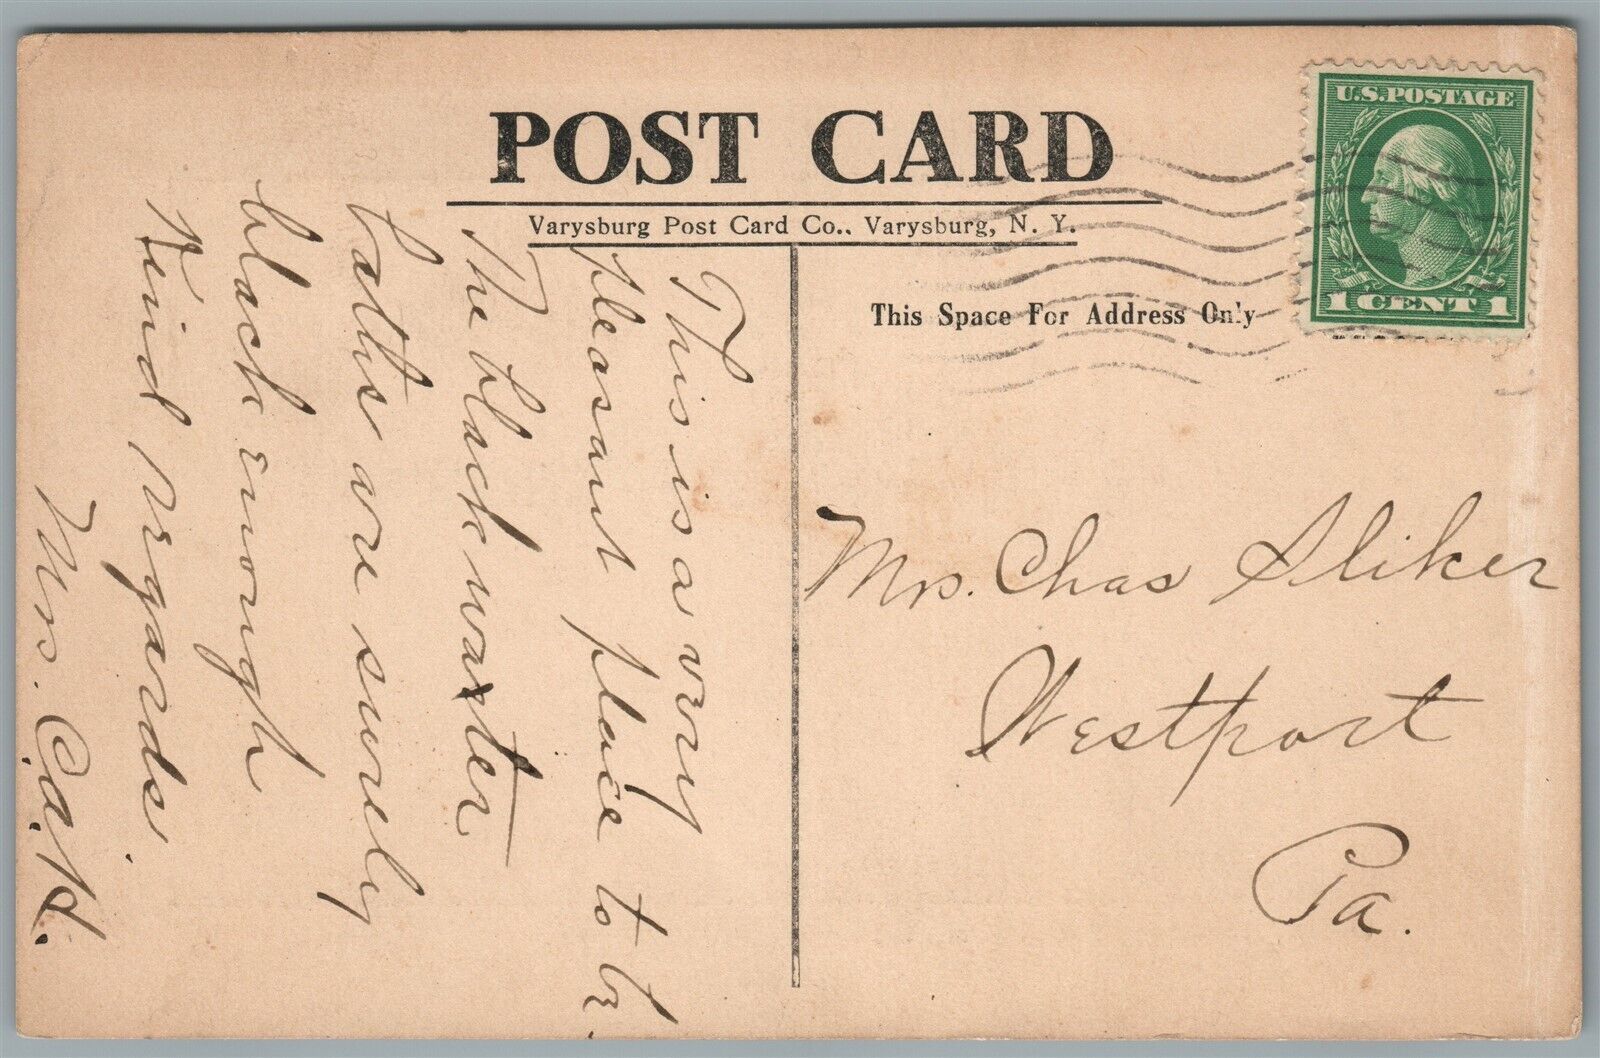 POST CARD
Varysburg Post Card Co., Varysburg, N. Y.
U.S. POSTAGE
1 CENT 1
This Space For Address Only
This is a very
pleasant place to be
The black water
baths are surely
black enough
Kind regards
Mrs. C.a.H.
Mrs. Chas Sliker
Westport
Pa.